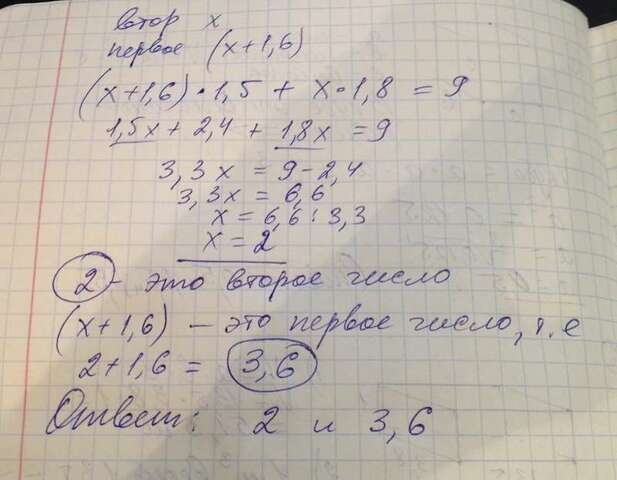 втор х
первое (х+1,6)
(х+1,6)·1,5 + х·1,8 = 9
1,5х + 2,4 + 1,8х = 9
3,3х = 9-2,4
3,3х = 6,6
х = 6,6 : 3,3
х = 2
2 - это второе число
(х+1,6) - это первое число, т.е
2+1,6 = 3,6
Ответ: 2 и 3,6